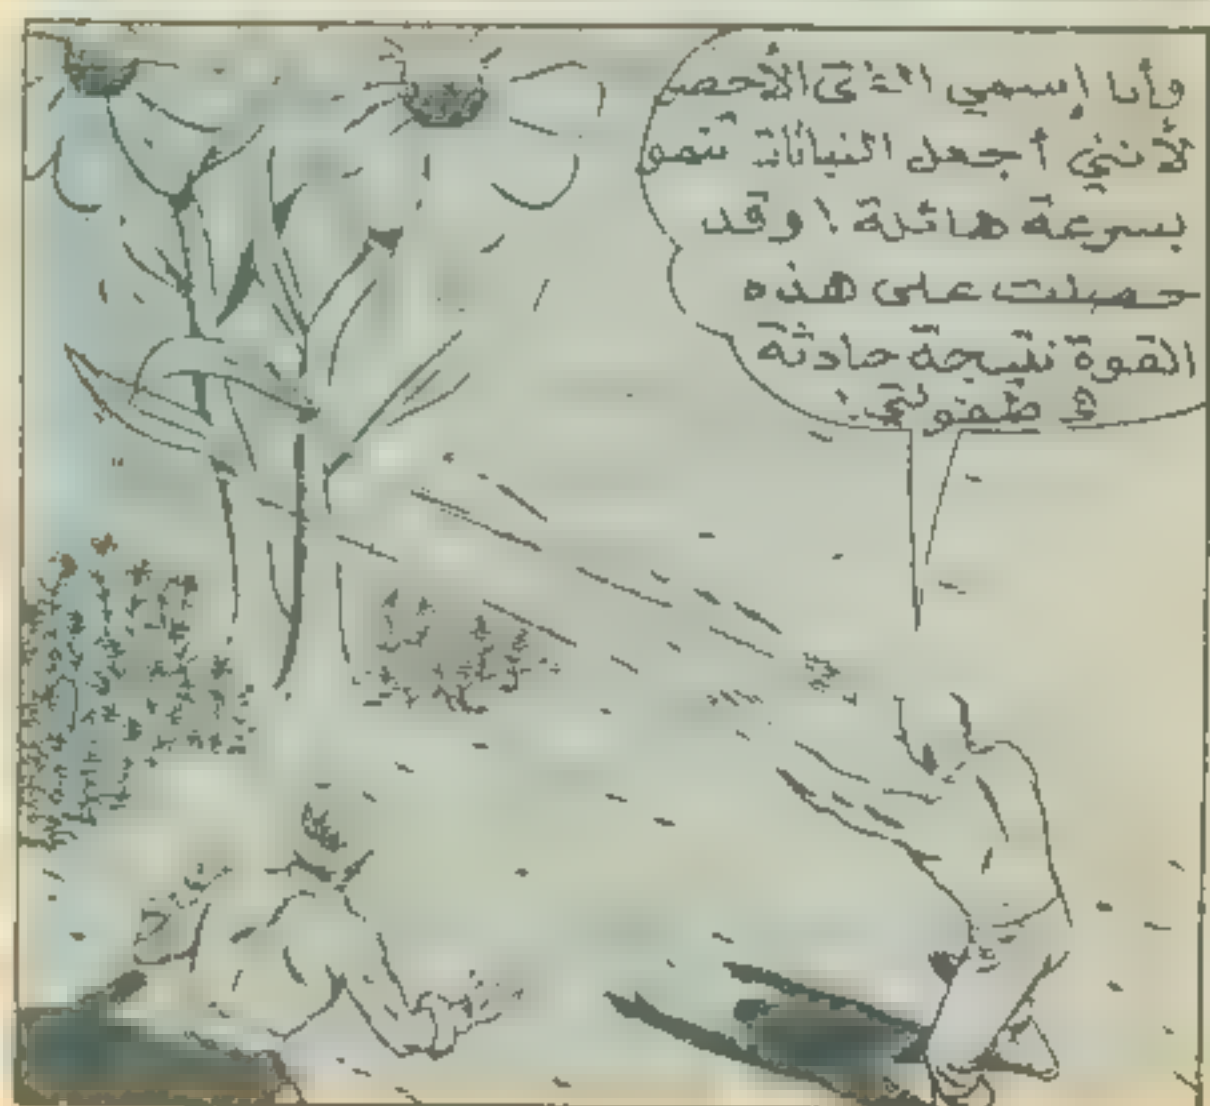 وأنا إسمي الفتى الأخضر
لأنني أجعل النباتات تنمو
بسرعة هائلة ! وقد
حصلت على هذه
القوة نتيجة حادثة
في طفولتي .